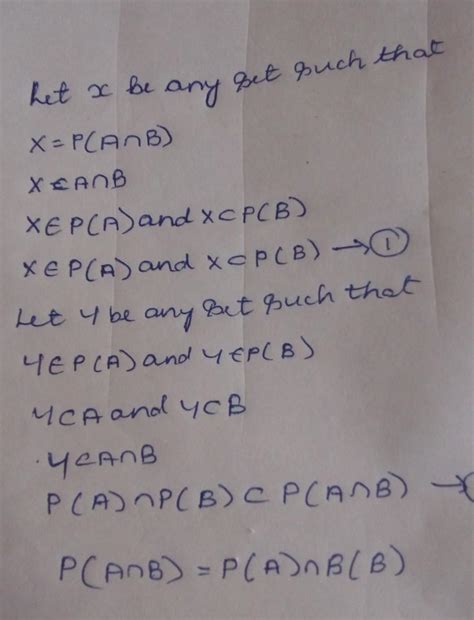 Let x be any set such that
X = P(A∩B)
X ⊂ A∩B
X ∈ P(A) and X ⊂ P(B)
X ∈ P(A) and X ⊂ P(B) → ①
Let Y be any set such that
Y ∈ P(A) and Y ∈ P(B)
Y ⊂ A and Y ⊂ B
. Y ⊂ A∩B
P(A) ∩ P(B) ⊂ P(A∩B) →
P(A∩B) = P(A) ∩ B(B)